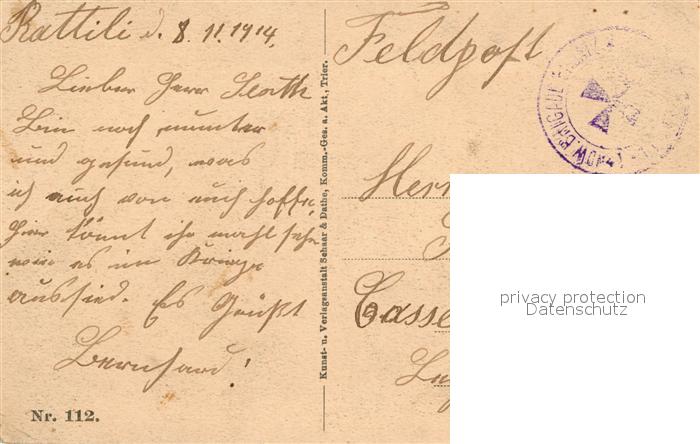 Rattili d. 8. 11. 1914.
Lieber Herr
Bin noch munter
und gesund, was
ich auch von euch hoffe,
hier könnt ihr mahl sehn
wie es im Kriege
aussied. Es Grüßt
Bernhard!
Nr. 112.
Kunst- u. Verlagsanstalt Schaar & Dathe, Komm.-Ges. a. Akt., Trier.
Feldpost
Herr
Casse
privacy protection
Datenschutz